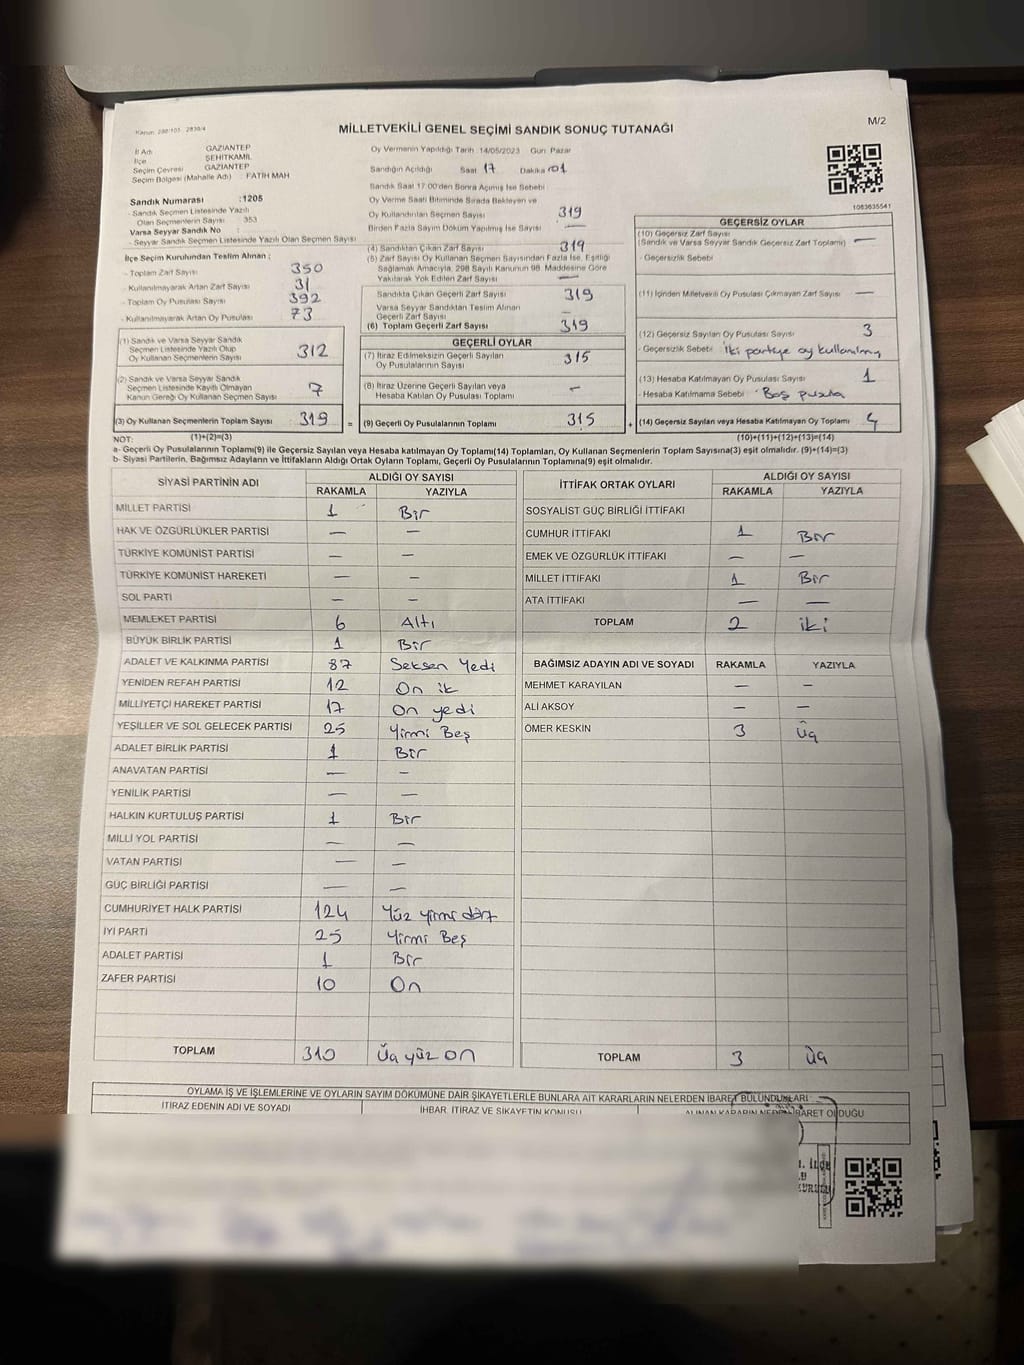 M/2
MİLLETVEKİLİ GENEL SEÇİMİ SANDIK SONUÇ TUTANAĞI
İl Adı GAZİANTEP
İlçe ŞEHİTKAMİL
Seçim Çevresi GAZİANTEP
Seçim Bölgesi (Mahalle Adı) : FATİH MAH
Sandık Numarası :1205
- Sandık Seçmen Listesinde Yazılı
Olan Seçmenlerin Sayısı 353
Varsa Seyyar Sandık No :
- Seyyar Sandık Seçmen Listesinde Yazılı Olan Seçmen Sayısı
İlçe Seçim Kurulundan Teslim Alınan ;
- Toplam Zarf Sayısı 350
- Kullanılmayarak Artan Zarf Sayısı 31
- Toplam Oy Pusulası Sayısı 392
- Kullanılmayarak Artan Oy Pusulası 73
(1) Sandık ve Varsa Seyyar Sandık
Seçmen Listesinde Yazılı Olup
Oy Kullanan Seçmenlerin Sayısı 312
(2) Sandık ve Varsa Seyyar Sandık
Seçmen Listesinde Kayıtlı Olmayan
Kanun Gereği Oy Kullanan Seçmen Sayısı 7
(3) Oy Kullanan Seçmenlerin Toplam Sayısı 319
Oy Vermenin Yapıldığı Tarih : 14/05/2023 Gün Pazar
Sandığın Açıldığı Saat 17 Dakika 01
Sandık Saat 17:00'den Sonra Açımış İse Sebebi
Oy Verme Saati Bitiminde Sırada Bekleyen ve
Oy Kullandırılan Seçmen Sayısı 319
Birden Fazla Sayım Döküm Yapılmış İse Sayısı —
(4) Sandıktan Çıkan Zarf Sayısı 319
(5) Zarf Sayısı Oy Kullanan Seçmen Sayısından Fazla İse, Eşitliği
Sağlamak Amacıyla, 298 Sayılı Kanunun 98. Maddesine Göre
Yakılarak Yok Edilen Zarf Sayısı —
Sandıkta Çıkan Geçerli Zarf Sayısı 319
Varsa Seyyar Sandıktan Teslim Alınan
Geçerli Zarf Sayısı —
(6) Toplam Geçerli Zarf Sayısı 319
GEÇERLİ OYLAR
(7) İtiraz Edilmeksizin Geçerli Sayılan
Oy Pusulasının Sayısı 315
(8) İtiraz Üzerine Geçerli Sayılan veya
Hesaba Katılan Oy Pusulası Toplamı —
= (9) Geçerli Oy Pusulalarının Toplamı 315
1083635541
GEÇERSİZ OYLAR
(10) Geçersiz Zarf Sayısı
(Sandık ve Varsa Seyyar Sandık Geçersiz Zarf Toplamı) —
- Geçersizlik Sebebi
(11) İçinden Milletvekili Oy Pusulası Çıkmayan Zarf Sayısı —
(12) Geçersiz Sayılan Oy Pusulası Sayısı 3
- Geçersizlik Sebebi İki partiye oy kullanılmış
(13) Hesaba Katılmayan Oy Pusulası Sayısı 1
- Hesaba Katılmama Sebebi Boş pusula
+ (14) Geçersiz Sayılan veya Hesaba Katılmayan Oy Toplamı 4
NOT: (1)+(2)=(3) (10)+(11)+(12)+(13)=(14)
a- Geçerli Oy Pusulalarının Toplamı(9) ile Geçersiz Sayılan veya Hesaba katılmayan Oy Toplamı(14) Toplamları, Oy Kullanan Seçmenlerin Toplam Sayısına(3) eşit olmalıdır. (9)+(14)=(3)
b- Siyasi Partilerin, Bağımsız Adayların ve İttifakların Aldığı Ortak Oyların Toplamı, Geçerli Oy Pusulalarının Toplamına(9) eşit olmalıdır.
SİYASİ PARTİNİN ADI ALDIĞI OY SAYISI
RAKAMLA YAZIYLA
MİLLET PARTİSİ 1 Bir
HAK VE ÖZGÜRLÜKLER PARTİSİ — —
TÜRKİYE KOMÜNİST PARTİSİ — —
TÜRKİYE KOMÜNİST HAREKETİ — —
SOL PARTİ — —
MEMLEKET PARTİSİ 6 Altı
BÜYÜK BİRLİK PARTİSİ 1 Bir
ADALET VE KALKINMA PARTİSİ 87 Seksen Yedi
YENİDEN REFAH PARTİSİ 12 On ik
MİLLİYETÇİ HAREKET PARTİSİ 17 On yedi
YEŞİLLER VE SOL GELECEK PARTİSİ 25 Yirmi Beş
ADALET BİRLİK PARTİSİ 1 Bir
ANAVATAN PARTİSİ — —
YENİLİK PARTİSİ — —
HALKIN KURTULUŞ PARTİSİ 1 Bir
MİLLİ YOL PARTİSİ — —
VATAN PARTİSİ — —
GÜÇ BİRLİĞİ PARTİSİ — —
CUMHURİYET HALK PARTİSİ 124 Yüz yirmi dört
İYİ PARTİ 25 Yirmi Beş
ADALET PARTİSİ 1 Bir
ZAFER PARTİSİ 10 On
TOPLAM 310 Üç yüz on
İTTİFAK ORTAK OYLARI ALDIĞI OY SAYISI
RAKAMLA YAZIYLA
SOSYALİST GÜÇ BİRLİĞİ İTTİFAKI
CUMHUR İTTİFAKI 1 Bir
EMEK VE ÖZGÜRLÜK İTTİFAKI — —
MİLLET İTTİFAKI 1 Bir
ATA İTTİFAKI — —
TOPLAM 2 iki
BAĞIMSIZ ADAYIN ADI VE SOYADI RAKAMLA YAZIYLA
MEHMET KARAYILAN — —
ALİ AKSOY — —
ÖMER KESKİN 3 Üç
TOPLAM 3 Üç
OYLAMA İŞ VE İŞLEMLERİNE VE OYLARIN SAYIM DÖKÜMÜNE DAİR ŞİKAYETLERLE BUNLARA AİT KARARLARIN NELERDEN İBARET BULUNDUKLARI
İTİRAZ EDENİN ADI VE SOYADI İHBAR, İTİRAZ VE ŞİKAYETİN KONUSU ALINAN KARARIN NEDEN İBARET OLDUĞU